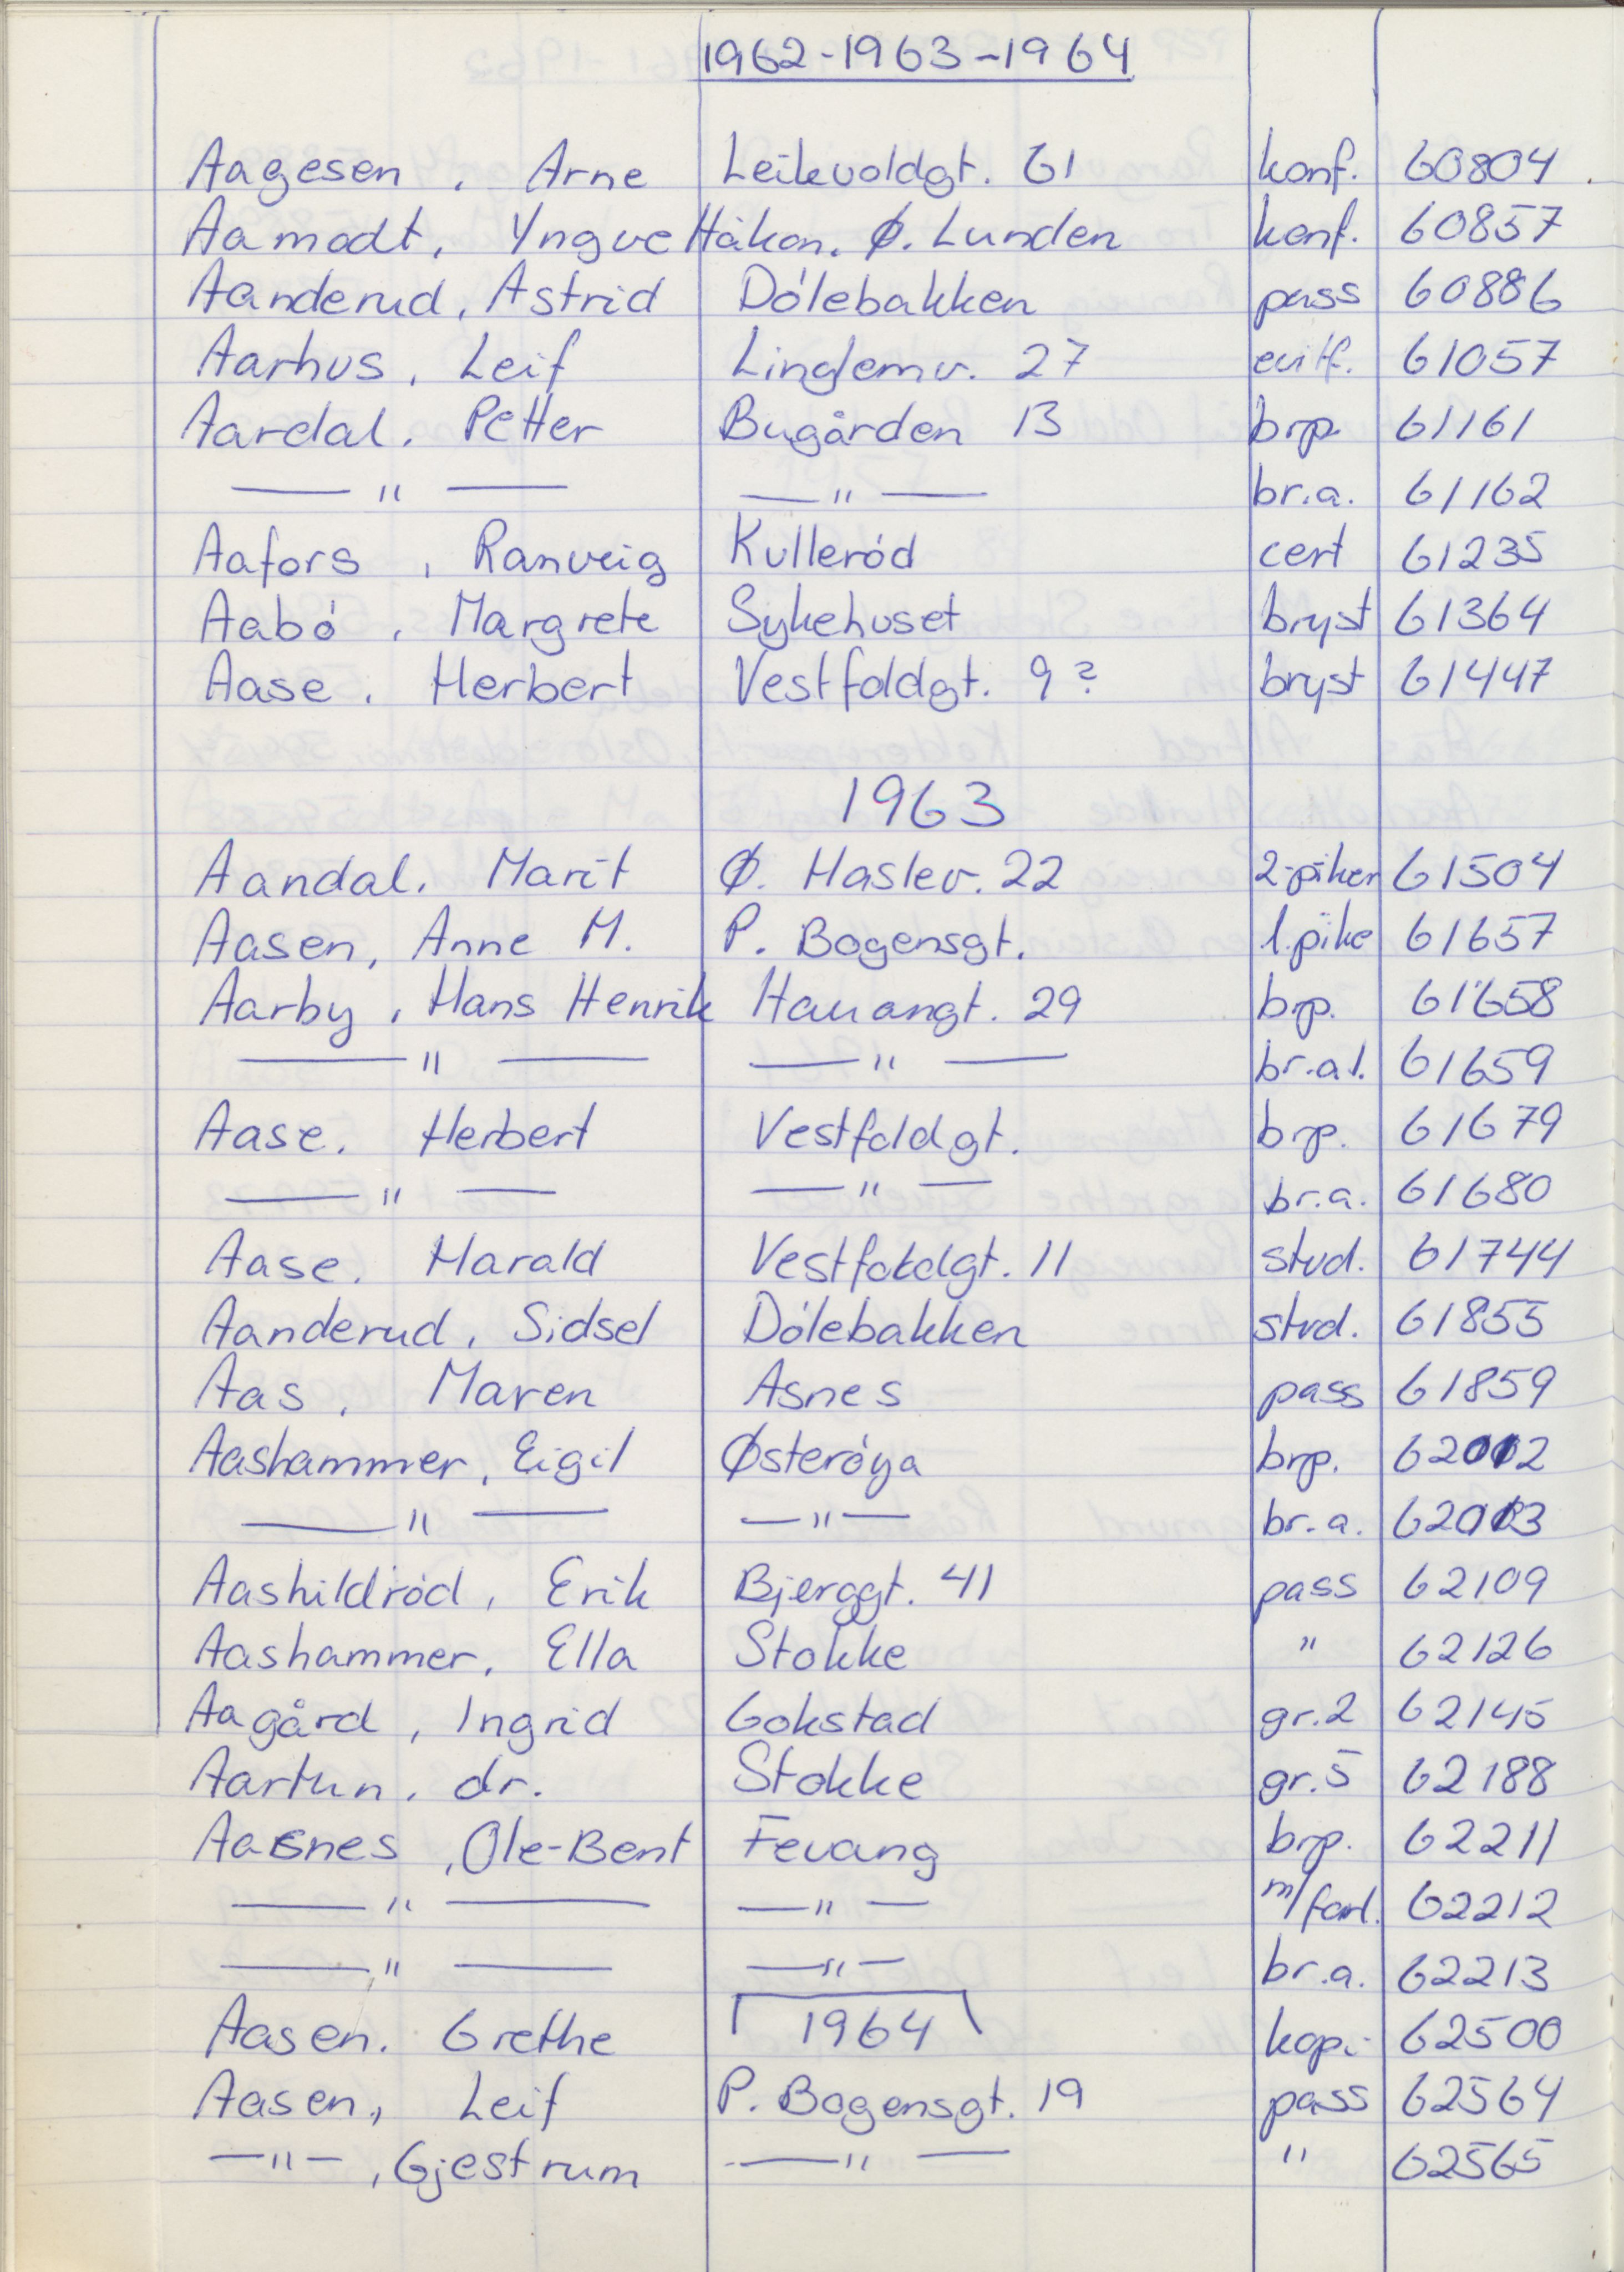 1962-1963-1964
Aagesen, Arne Leikvoldgt. 61 konf. 60804.
Aamodt, Yngve Håkon. Ø. Lunden konf. 60857
Aanderud, Astrid Dólebakken pass 60886
Aarhus, Leif Lindemv. 27 61057
Aardal. Petter Bugården 13 brp. 61161
—— " —— —— " —— br.a. 61162
Aafors, Ranveig Kulleród cert 61235
Aabó, Margrete Sykehuset bryst 61364
Aase. Herbert Vestfoldgt. 9? bryst 61447
1963
Aandal. Marit Ø. Haslev. 22 2-piker 61504
Aasen, Anne M. P. Bogensgt. 1.pike 61657
Aarby, Hans Henrik Hauangt. 29 brp. 61658
—— " —— —— " —— br.al. 61659
Aase. Herbert Vestfoldgt. brp. 61679
—— " —— —— " —— br.a. 61680
Aase. Harald Vestfoldgt. 11 stud. 61744
Aanderud, Sidsel Dólebakken stud. 61855
Aas, Maren Asnes pass 61859
Aashammer, Eigil Østeróya brp. 62012
—— " —— — " — br.a. 62013
Aashildród, Erik Bjerggt. 41 pass 62109
Aashammer, Ella Stokke " 62126
Aagård, Ingrid Gokstad gr.2 62145
Aartun, dr. Stokke gr.5 62188
Aasnes, Ole-Bent Fevang brp. 62211
—— " —— — " — m/forl. 62212
—— " —— — " — br.a. 62213
Aasen. Grethe 1964 kopi 62500
Aasen, Leif P. Bogensgt. 19 pass 62564
— " —, Gjestrum —— " —— " 62565